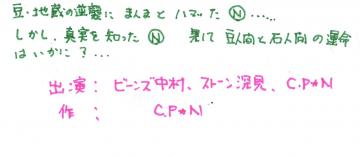 豆・地蔵の逆襲に まんまと ハマった Ⓝ ……
しかし、真実を知った Ⓝ 果して 豆人間と石人間の運命
はいかに？…
出演： ビーンズ中村、ストーン深見、C.P★N
作： C.P★N